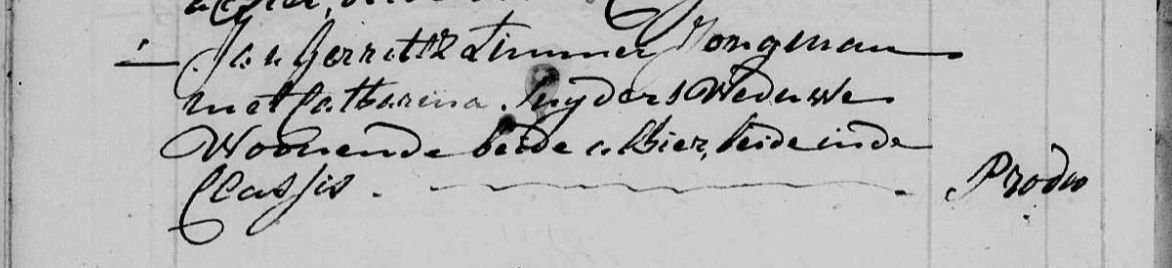 Jan Gerritsz Timmer Jongman
met Catharina Snyders Weduwe
Woonende beide alhier, beide inde
Classis. Prodeo